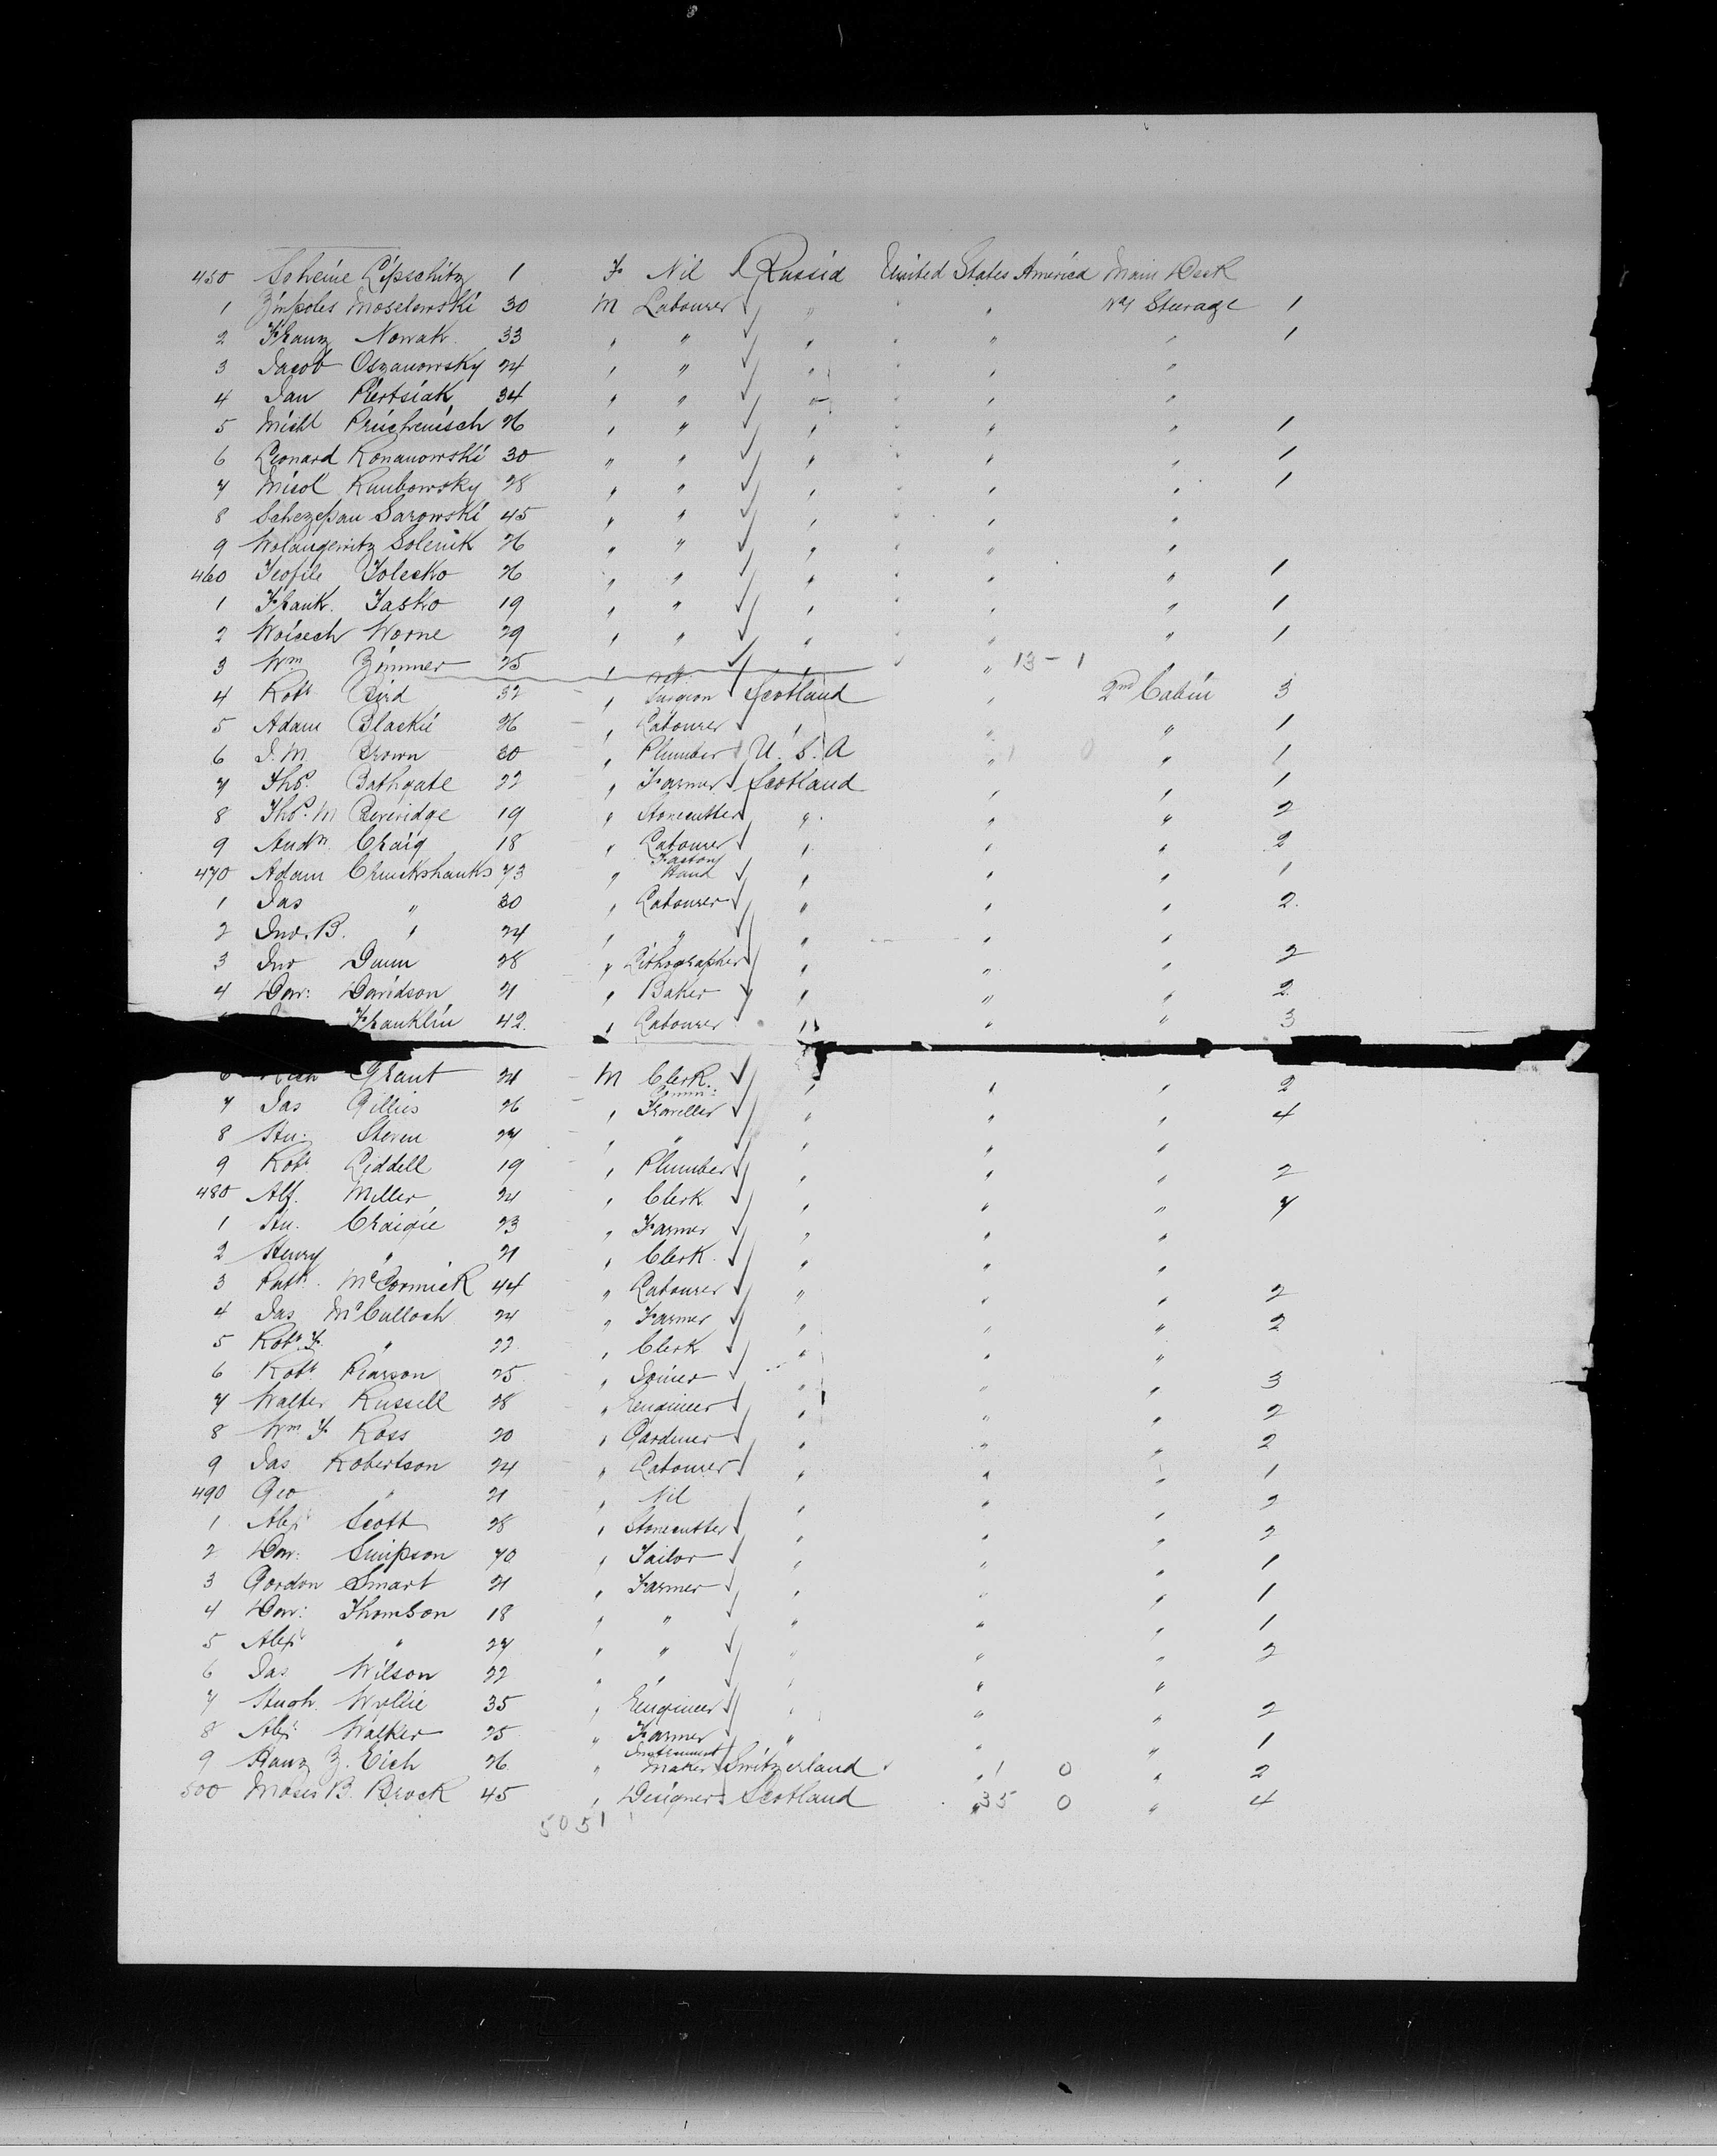 450 Scheine Lipschitz 1 F Nil Russia United States America Main Deck
1 Zinpoles Moselewski 30 M Labourer " " " No 1 Steerage 1
2 Franz Nowak 33 " " " " " " 1
3 Jacob Oszanowsky 24 " " " " " "
4 Jan Piertsiak 34 " " " " " "
5 Michl 26 " " " " " " 1
6 Leonard Konanowski 30 " " " " " " 1
7 Micol Kumbowsky 28 " " " " " " 1
8 Schezepan Sarowski 45 " " " " " "
9 Solenik 26 " " " " " "
460 Teofile Tolecko 26 " " " " " " 1
1 Frank Tasko 19 " " " " " " 1
2 Woisech Worne 29 " " " " " " 1
3 Wm Zimmer 25 " " " " " 13 - 1
4 Robt Bird 32 " Vety Surgeon Scotland " 2nd Cabin 3
5 Adam Blackie 26 " Labourer " " " 1
6 J. M. Brown 30 " Plumber U.S.A " 1 0 " 1
7 Thos. Bathgate 22 " Farmer Scotland " " 1
8 Thos. M Beveridge 19 " Stonecutter " " " 2
9 Andw. Craig 18 " Labourer " " " 2
470 Adam Cruickshanks 73 " Factory Hand " " " 1
1 Jas " 30 " Labourer " " " 2
2 Jno. B. " 24 " " " " "
3 Jno Dunn 28 " Lithographer " " " 2
4 Dav: Davidson 21 " Baker " " " 2
Franklin 42 " Labourer " " " 3
6 Grant 24 M Clerk " " " 2
7 Jas Gillies 26 " Comml Traveller " " " 4
8 Hu: Steven 27 " " " " "
9 Robt Liddell 19 " Plumber " " " 2
480 Alf. Miller 24 " Clerk " " " 7
1 Hu. Craigie 23 " Farmer " " "
2 Henry " 21 " Clerk " " "
3 Patk. McCormick 44 " Labourer " " " 2
4 Jas McCulloch 24 " Farmer " " " 2
5 Robt. F. " 22 " Clerk " " "
6 Robt Pearson 25 " Joiner " " " 3
7 Walter Russell 28 " Engineer " " " 2
8 Wm F Ross 20 " Gardener " " " 2
9 Jas Robertson 24 " Labourer " " " 1
490 Geo " 21 " Nil " " " 2
1 Alexr Scott 28 " Stonecutter " " " 2
2 Dav: Simpson 70 " Tailor " " " 1
3 Gordon Smart 21 " Farmer " " " 1
4 Dav: Thomson 18 " " " " " 1
5 Alexr " 27 " " " " " 2
6 Jas Wilson 22 " " " " "
7 Hugh Wyllie 35 " Engineer " " " 2
8 Alexr Walker 25 " Farmer " " " 1
9 Hanz Z. Eich 26 " Instrument Maker Switzerland " 1 0 " 2
500 Moses B. Brock 45 " Designer Scotland " 35 0 " 4
5051